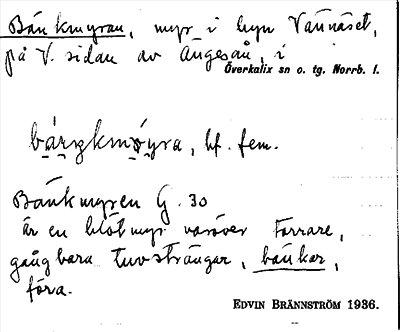 Bänkmyran, myr i byn Vännäset,
på V. sidan av Ängesån, i
Överkalix sn o. tg. Norrb. l.
bf. fem.
Bänkmyren G. 30
är en blötmyr varöver torrare,
gångbara tuvsträngar, bänkar,
föra.
EDVIN BRÄNNSTRÖM 1936.